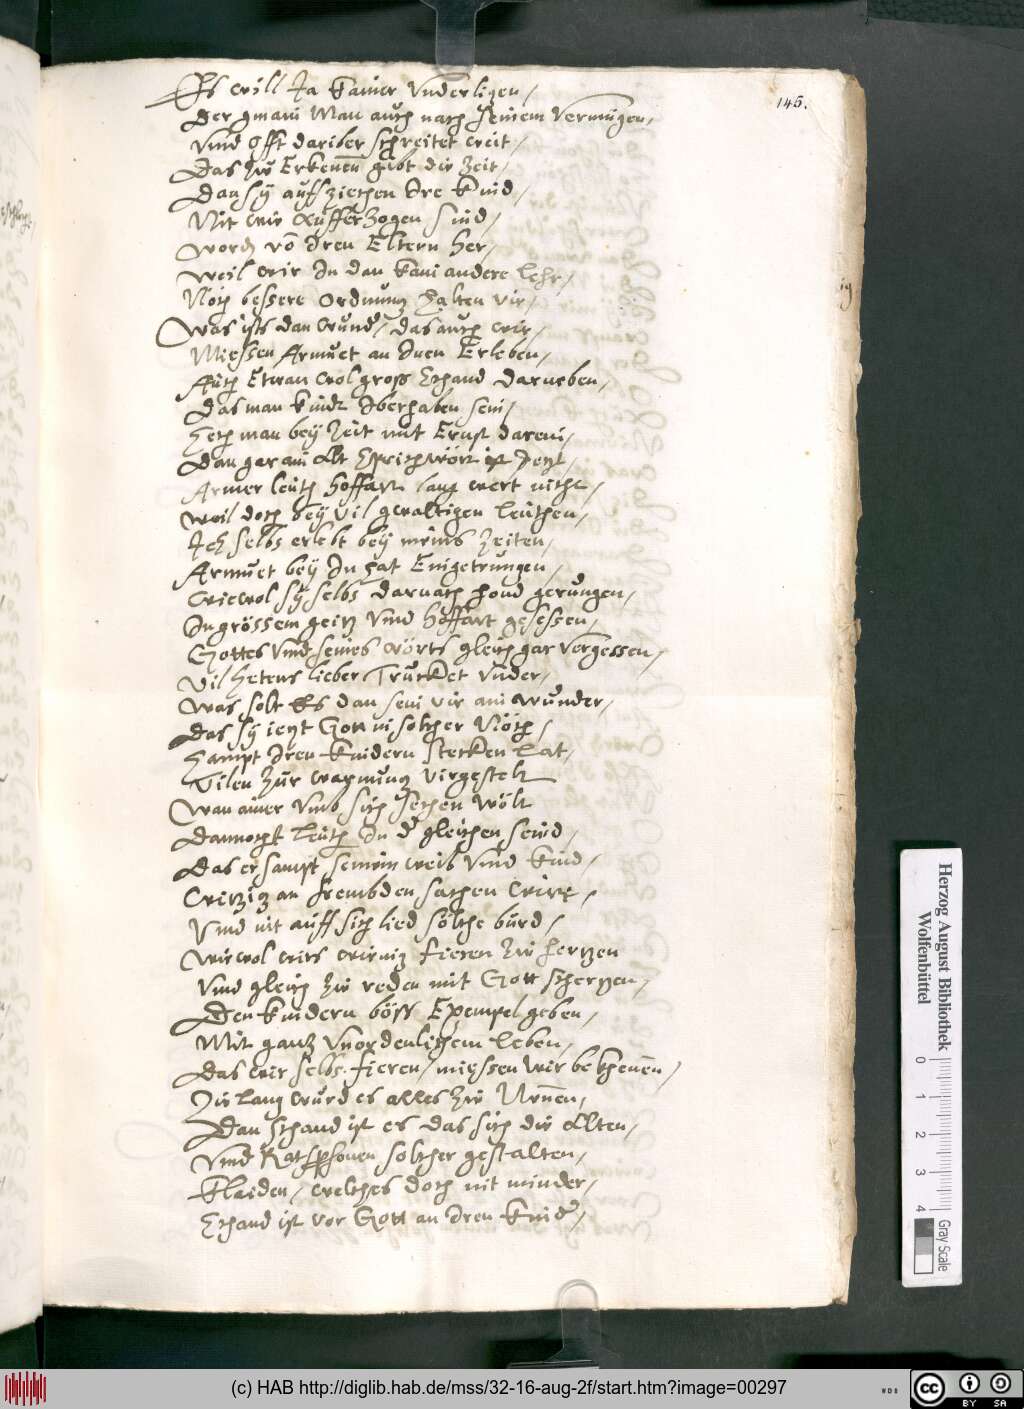 145.
Es will Ja kainer underligen/
Der gmain Man auch nach seinem vermügen/
Vnnd Offt dariber schreitet weit/
Das zů Erkenen gibt die Zeit/
Dan sÿ auffziechen Ire Kind/
Nit wie Aufferzogen sind/
Wordn vō Iren Eltern her/
Weil wir In dan kain andere Lehr/
Noch bessere Ordnung halten vir/
Was ists dan wund~/ das auch wir/
Miessen Armuet an Inen Erleben/
Auch Etwan wol gross Schand darneben/
Das man kindt Iberhaben sein/
Sech man beÿ Zeit mit Ernst darein/
Dan gar ain Alt Sprichwört ist Jetzt/
Armer leuth hoffart lang wert nicht/
Weil doch beÿ vil gwaltigen leuthen/
Ich selbs erlebt beÿ meins Zeiten/
Armuet beÿ In hat Eingetrungen/
Wiewol sÿ selbs darnach hond gerungen/
In grössem geitz vnnd Hoffart gesessen/
Gottes vnnd seines wörts gleich gar vergessen/
Vil hetens lieber Trucket vnder/
Was solt Es dan sein vir ain wunder/
Das sÿ ietzt Gott in solcher Nöth/
Sampt Iren Kindern stecken lat/
Vilen zur warnung virgestelt
Wan ainer vmb sich sechen wölt
Dannocht leuth In d~ gleichen seind/
Das er sampt seinem weib vnnd kind/
Witzig an frembden sachen wire/
Vnnd nit auff sich lied solche burd/
Wiewol wirs wienig fieren zů hertzen
Vnnd gleich zů reden mit Gott schertzen/
Den kindern böss Exempel geben/
Mit gantz vnordenlichem leben/
Das wir selbs fieren/ miessen wir bekhenen/
Zů lang wurd es alles zů Nenen/
Dan schand ist es das sich die Alten/
Vnnd Ratspersonen solcher gestalten/
Klaiden/ welches doch nit minder/
Schand ist vor Gott an Iren kind~/
Herzog August Bibliothek
Wolfenbüttel
0 1 2 3 4
Gray Scale
(c) HAB http://diglib.hab.de/mss/32-16-aug-2f/start.htm?image=00297
WDB
cc BY SA